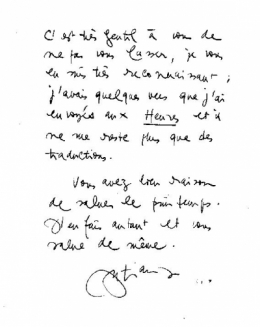 C'est très gentil à vous de
ne pas vous lasser, je vous
en suis très reconnaissant ;
j'avais quelques vers que j'ai
envoyés aux Heures et il
ne me reste plus que des
traductions.
Vous avez bien raison
de saluer le printemps.
J'en fais autant et vous
salue de même.